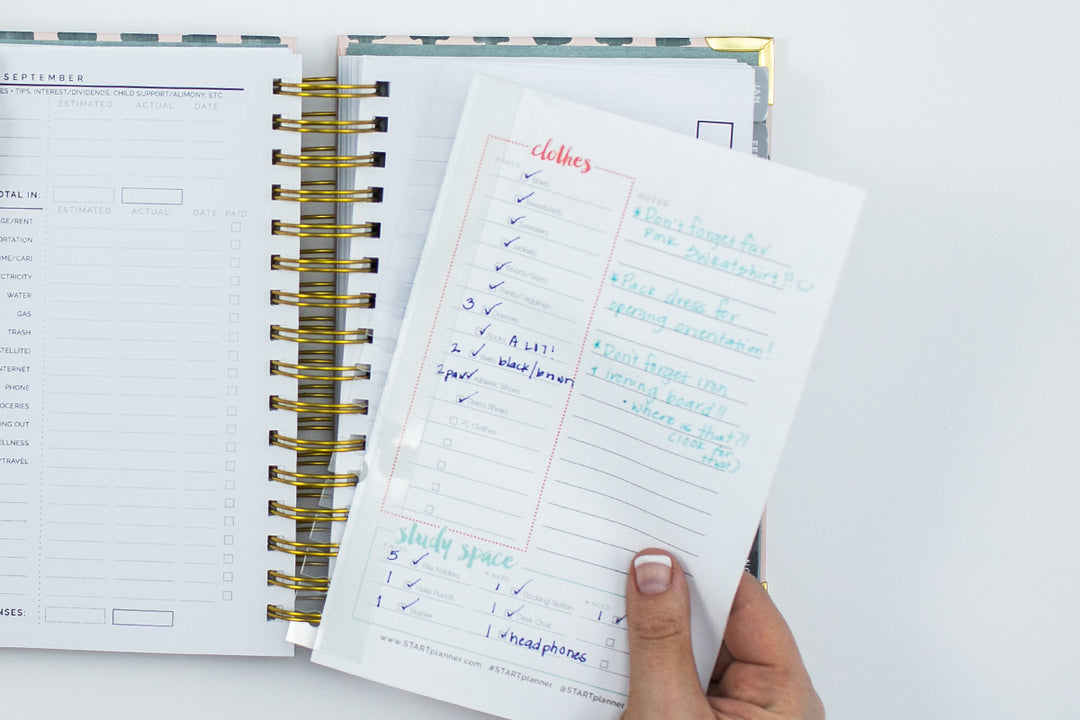 SEPTEMBER
ES • TIPS, INTEREST/DIVIDENDS, CHILD SUPPORT/ALIMONY, ETC.
ESTIMATED ACTUAL DATE
OTAL IN:
ESTIMATED ACTUAL DATE PAID
GE/RENT
ORTATION
OME/CAR)
CTRICITY
WATER
GAS
TRASH
ATELLITE)
NTERNET
PHONE
OCERIES
ING OUT
ELLNESS
/TRAVEL
NSES:
JAN
clothes
NEED
Shirts
Sweatshirts
Sweaters
Jackets
Shorts/Skirts
Pants/Leggings
3 Dresses
Socks A LOT!
2 Belts black/brown
2 pair Athletic Shoes
Dress Shoes
PC Clothes
NOTES
*Don't forget fav
pink sweatshirt!!
*Pack dress for
opening orientation!
*Don't forget iron
+ ironing board!!
•where is that?!
(look for
that)
study space
NEED
5 File Folders
1 Hole Punch
1 Stapler
NEED
1 Docking Station
1 Desk Chair
1 headphones
NEED
1
www.STARTplanner.com #STARTplanner @STARTplanner